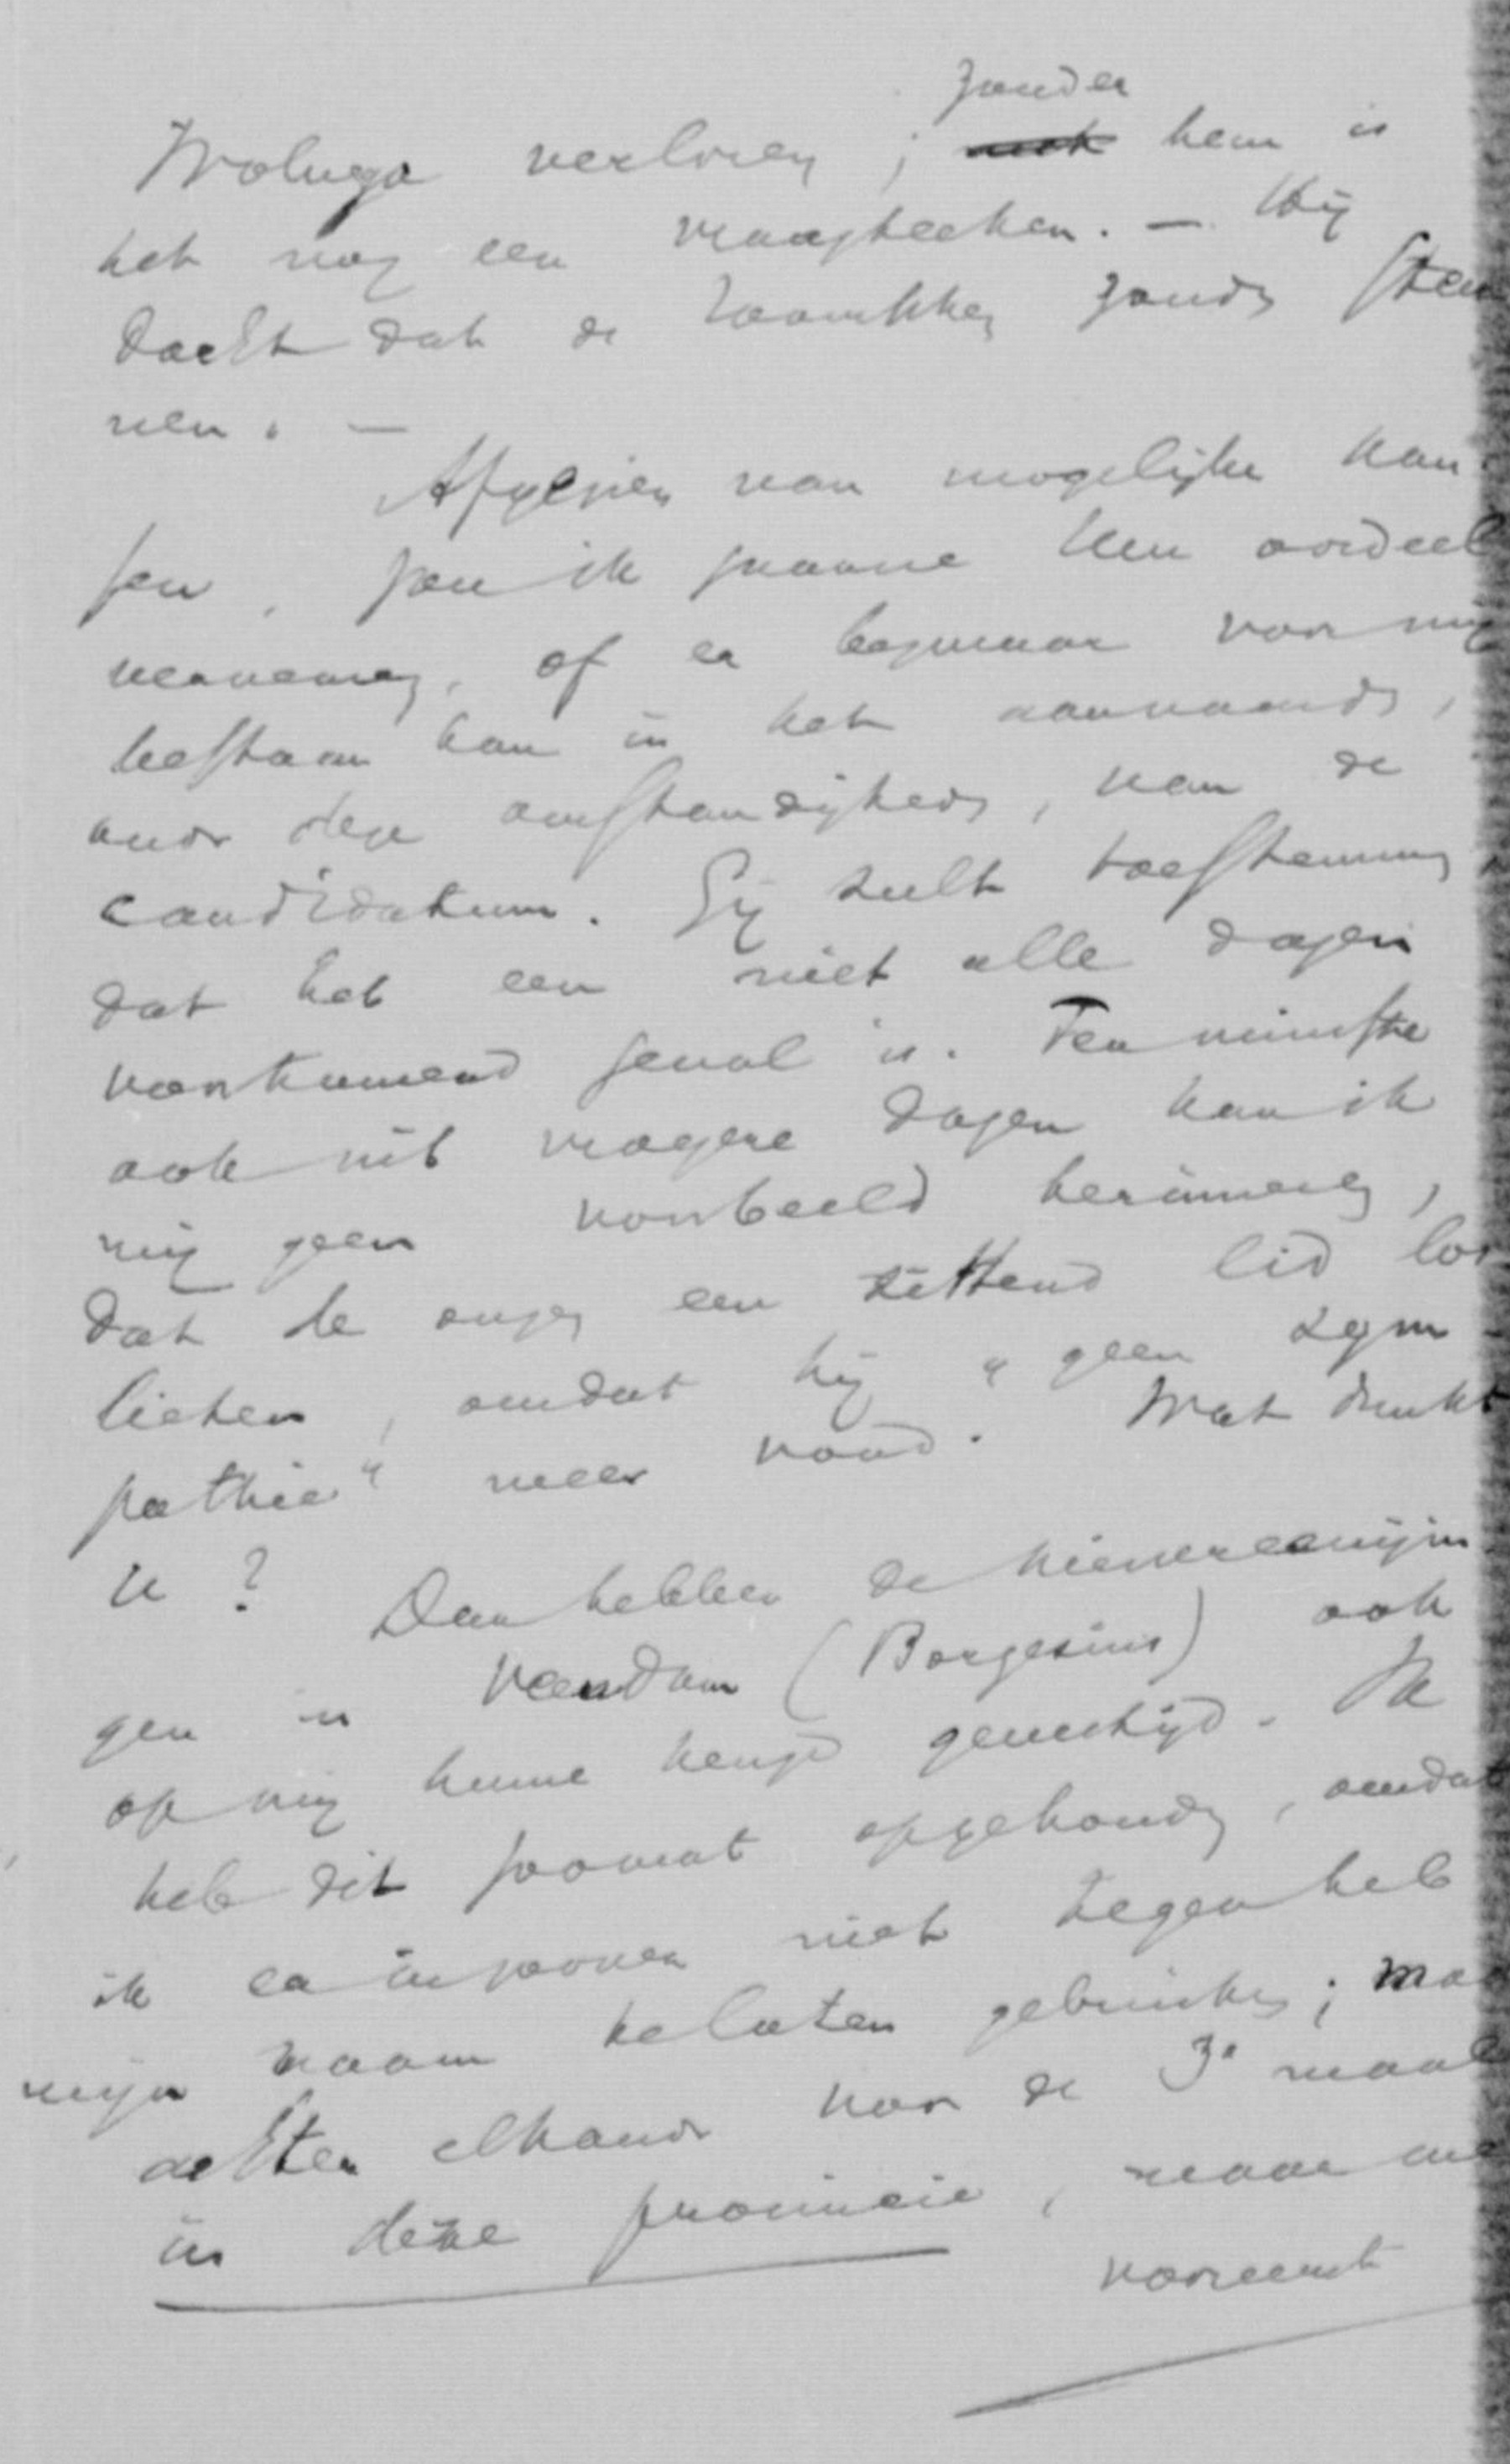 zonder
Wolvega verloren ; met hem is
het nog een vraagteeken. — Hij
dacht dat de Roomschen zouden stem
men. —
Afgezien van mogelijke kan
sen, zou ik gaarne Uw oordeel
vernemen, of er bezwaar voor mij
bestaan kan in het aanvaarden,
onder deze omstandigheden, van de
candidatuur. Gij zult toestemmen
dat het een niet alle dagen
voorkomend geval is. Ten minste
ook uit vroegere dagen kan ik
mij geen voorbeeld herinneren,
dat de onzen een zittend lid los
lieten, omdat hij "geen sym-
pathie" meer vond. Wat dunkt
U ? Dan hebben de kiesvereenigin
gen in Veendam (Borgesius) ook
op mij hunne keuze gevestigd. Ik
heb dit zoowat opgehouden, omdat
ik er
niet tegen heb
mijn naam te laten gebruiken; maar
achter elkander voor de 3e maal
in deze provincie, maar
vooreerst